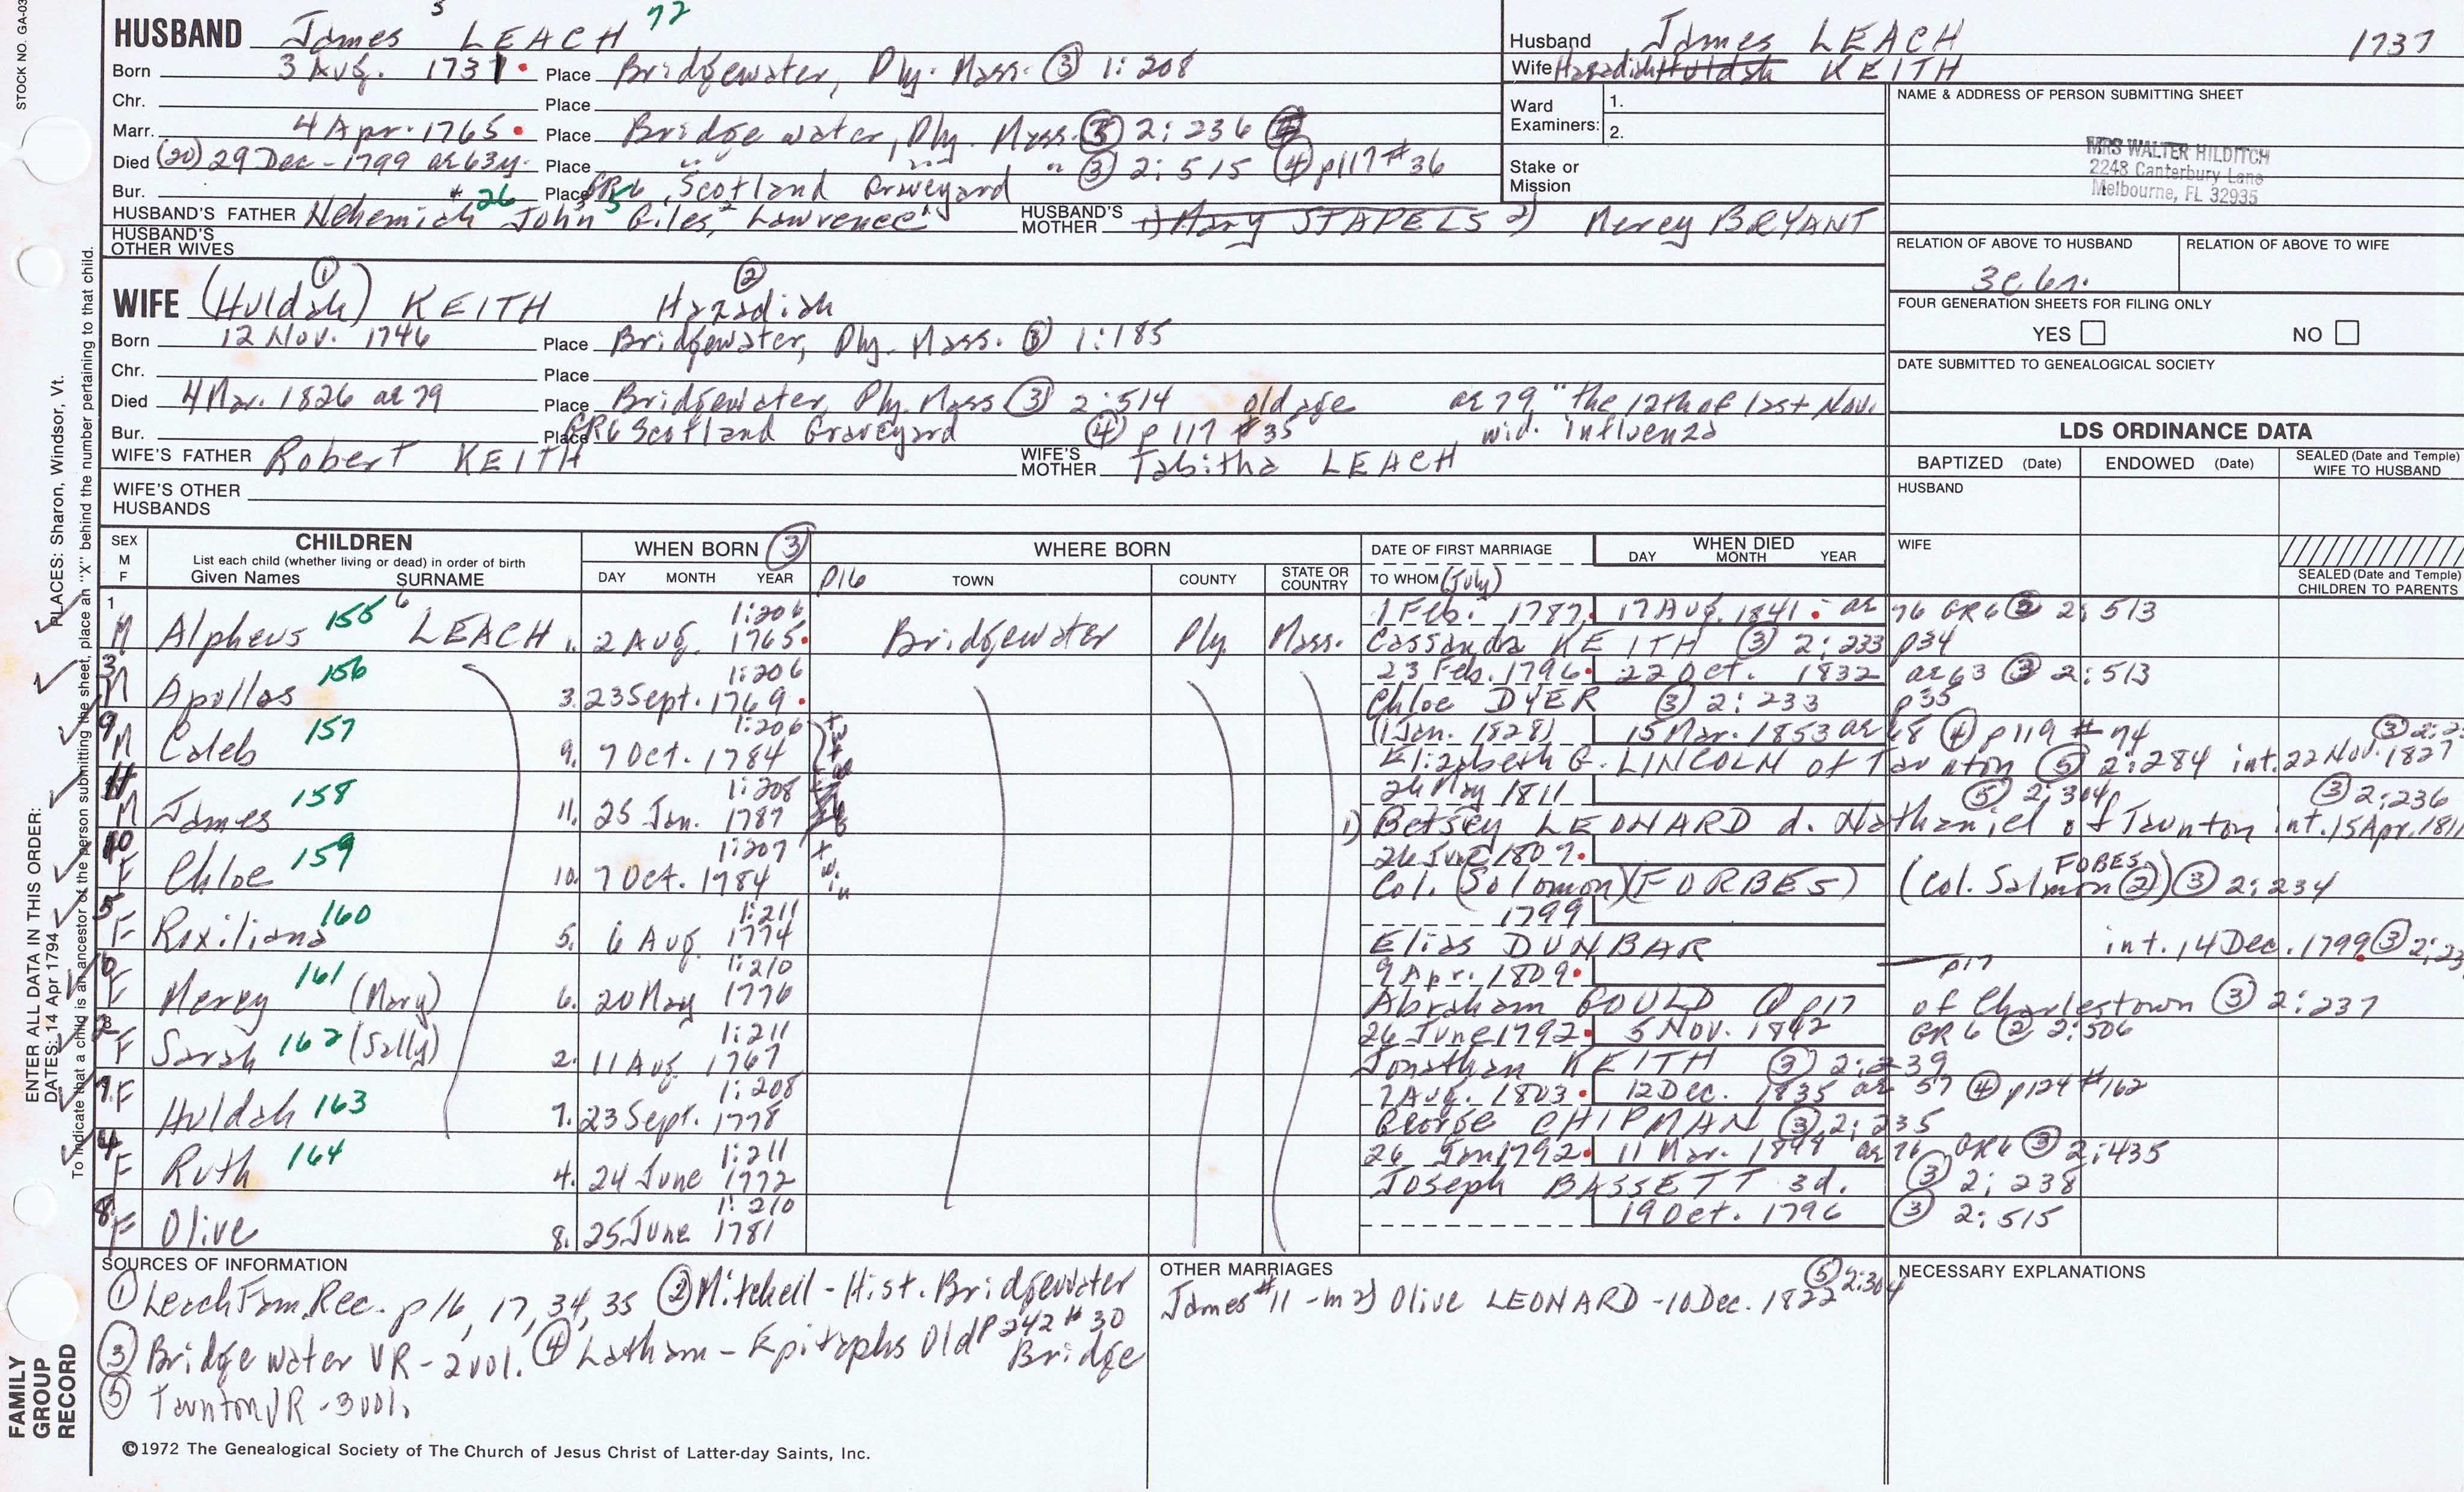 STOCK NO. GA-03
HUSBAND James 5 LEACH 72
Born 3 Aug. 1737 Place Bridgewater, Ply. Mass. (3) 1:208
Chr. Place
Marr. 4 Apr. 1765 Place Bridgewater, Ply. Mass. (3) 2:236
Died (20) 29 Dec - 1799 ae 63y. Place " " " (3) 2:515 (4) p117 #36
Bur. Place GR6, Scotland Graveyard
HUSBAND'S FATHER Nehemiah 26 John 3 Giles, 2 Lawrence 1 HUSBAND'S MOTHER 1) Mary STAPELS 2) Mercy BRYANT
HUSBAND'S OTHER WIVES
Husband James LEACH 1737
Wife Hazadiah Huldah KEITH
Ward Examiners: 1.
2.
Stake or Mission
NAME & ADDRESS OF PERSON SUBMITTING SHEET
MRS WALTER HILDITCH
2248 Canterbury Lane
Melbourne, FL 32935
RELATION OF ABOVE TO HUSBAND RELATION OF ABOVE TO WIFE
FOUR GENERATION SHEETS FOR FILING ONLY
YES NO
DATE SUBMITTED TO GENEALOGICAL SOCIETY
(1) (2)
WIFE (Huldah) KEITH Hazadiah
Born 12 Nov. 1746 Place Bridgewater, Ply. Mass. (3) 1:185
Chr. Place
Died 4 Mar. 1826 ae 79 Place Bridgewater, Ply. Mass (3) 2:514 old age ae 79 "the 12th of last Nov.
Bur. Place GR6 Scotland Graveyard (4) p 117 #35 wid. influenza
WIFE'S FATHER Robert KEITH WIFE'S MOTHER Tabitha LEACH
WIFE'S OTHER HUSBANDS
LDS ORDINANCE DATA
BAPTIZED (Date) ENDOWED (Date) SEALED (Date and Temple) WIFE TO HUSBAND
HUSBAND
WIFE
SEALED (Date and Temple) CHILDREN TO PARENTS
SEX M F CHILDREN List each child (whether living or dead) in order of birth Given Names SURNAME
WHEN BORN (3) DAY MONTH YEAR
WHERE BORN p16 TOWN COUNTY STATE OR COUNTRY
DATE OF FIRST MARRIAGE TO WHOM (July)
WHEN DIED DAY MONTH YEAR
1 1:206 1 Feb. 1787 17 Aug. 1841 ae 76 GR6 2:513
M Alpheus 155 6 LEACH 1. 2 Aug. 1765 Bridgewater Ply Mass. Cassandra KEITH (3) 2:233 p34
3 156 1:206 23 Feb. 1796 22 Oct. 1832 ae 63 (3) 2:513
M Apollos 3. 23 Sept. 1769 Chloe DYER (3) 2:233 p35
9 157 1:206 (1 Jan. 1828) 15 Mar. 1853 ae 68 (4) p119 #74
M Caleb 9. 7 Oct. 1784 twin Elizabeth G. LINCOLN of Taunton (5) 2:284 int. 22 Nov. 1827
11 158 1:208 26 May 1811 (5) 2:304 (3) 2:236
M James 11. 25 Jan. 1787 1) Betsey LEONARD d. Nathaniel of Taunton int. 15 Apr. 1811
10 159 1:207 26 June 1807 FOBES
F Chloe 10. 7 Oct. 1784 twin Col. (Solomon) (FORBES) (Col. Salmon (2)) (3) 2:234
5 160 1:211 1799
F Roxiliana 5. 6 Aug 1774 Elias DUNBAR int. 14 Dec. 1799 (3)
6 161 1:210 9 Apr. 1809 p17
F Mercy (Mary) 6. 20 May 1776 Abraham GOULD (1) p17 of Charlestown (3) 2:237
2 1:211 26 June 1792 5 Nov. 1842 GR6 (2) 2:506
F Sarah 162 (Sally) 2. 11 Aug 1767 Jonathan KEITH (3) 2:239
7. F 1:208 7 Aug. 1803 12 Dec. 1835 ae 57 (4) p124 #162
Huldah 163 7. 23 Sept. 1778 George CHIPMAN (3) 2:235
4 1:211 26 Jan 1792 11 Mar. ae 76 GR6 (3) 2:435
F Ruth 164 4. 24 June 1772 Joseph BASSETT 3d. (3) 2:238
8 1:210 19 Oct. 1796 (3) 2:515
F Olive 8. 25 June 1781
SOURCES OF INFORMATION
(1) Leach Fam. Rec. p16, 17, 34, 35 (2) Mitchell - Hist. Bridgewater p242 #30
(3) Bridgewater VR - 2 vol. (4) Latham - Epitaphs Old Bridge
(5) Taunton VR - 3 vol.
OTHER MARRIAGES
James #11 - m 2) Olive LEONARD - 10 Dec. 1822 (5) 2:304
NECESSARY EXPLANATIONS
©1972 The Genealogical Society of The Church of Jesus Christ of Latter-day Saints, Inc.
FAMILY GROUP RECORD
ENTER ALL DATA IN THIS ORDER:
DATES: 14 Apr 1794
PLACES: Sharon, Windsor, Vt.
To indicate that a child is an ancestor of the person submitting the sheet, place an "X" behind the number pertaining to that child.